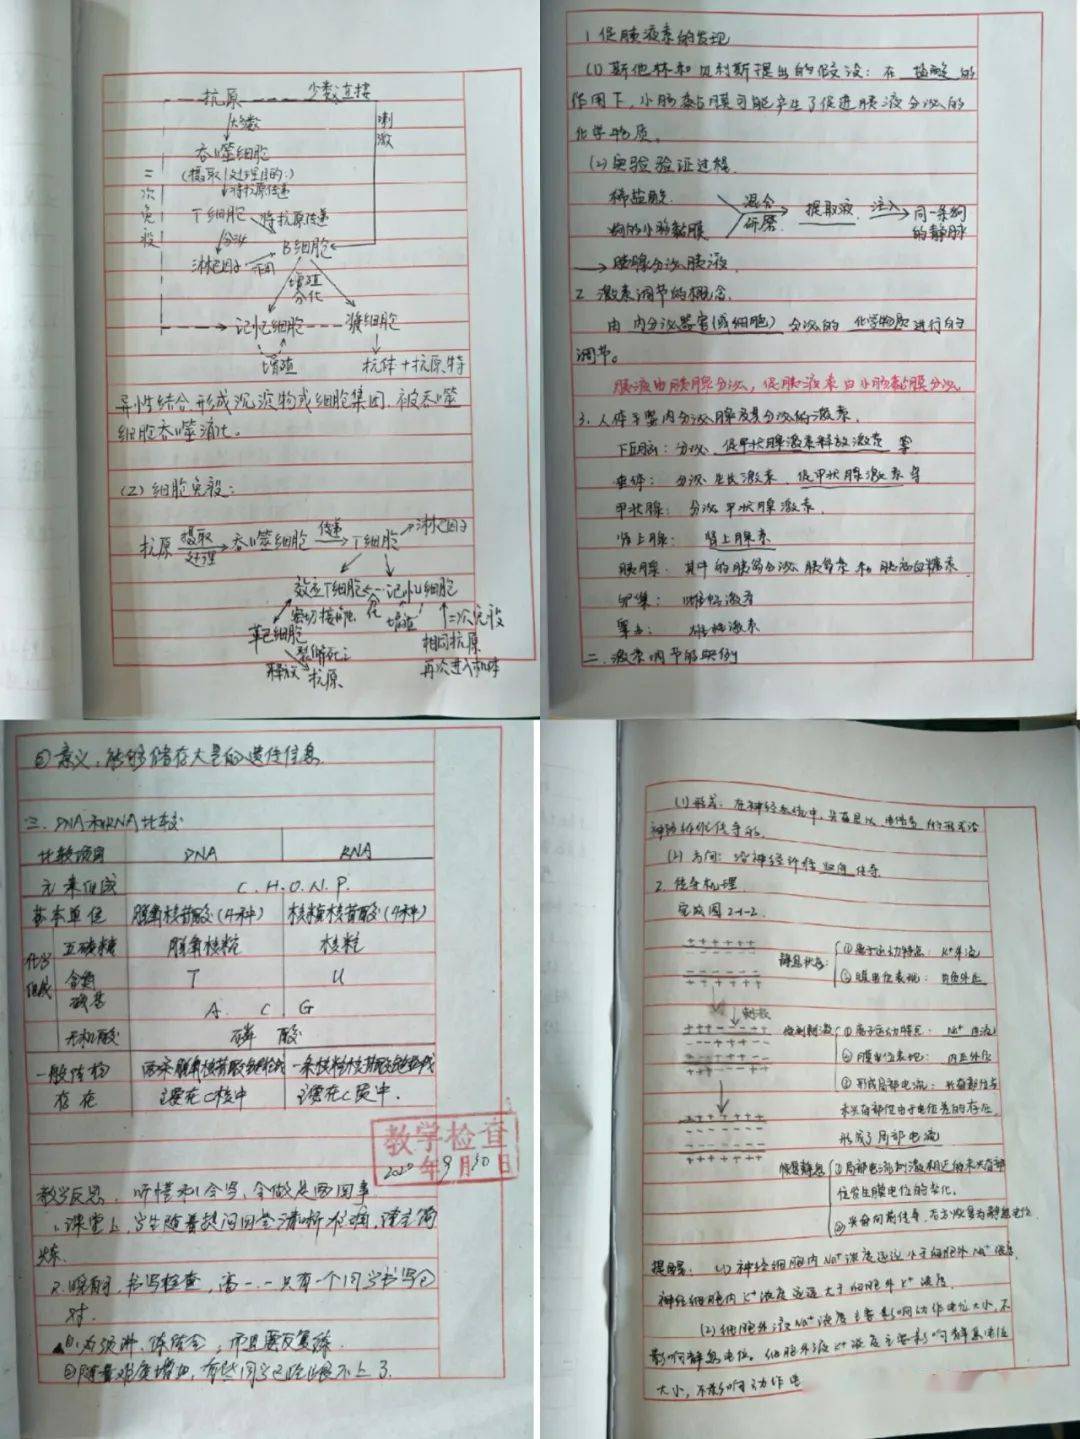 抗原 少数直接
大多数
刺激
吞噬细胞
(摄取/处理目的:)
将抗原传递
二次免疫
T细胞 将抗原传递
分泌
淋巴因子 作用 B细胞
增殖
分化
记忆细胞 浆细胞
增殖 抗体+抗原,特
异性结合,形成沉淀物或细胞集团,被吞噬
细胞吞噬消化。
(2)细胞免疫:
抗原 摄取 处理 吞噬细胞 传递 T细胞 淋巴因子
效应T细胞 分化 记忆细胞
密切接触 增殖 二次免疫
靶细胞 相同抗原
裂解死亡 再次进入机体
释放 抗原
1.促胰液素的发现
(1)斯他林和贝利斯提出的假设:在 盐酸 的
作用下,小肠黏膜可能产生了促进胰液分泌的
化学物质。
(2)实验验证过程
稀盐酸 混合 提取液 注入 同一条狗
狗的小肠黏膜 研磨 的静脉
→胰腺分泌胰液
2.激素调节的概念.
由 内分泌器官(或细胞) 分泌的 化学物质进行的
调节。
胰液由胰腺分泌,促胰液素由小肠黏膜分泌
3.人体主要内分泌腺及其分泌的激素.
下丘脑:分泌 促甲状腺激素释放激素 等
垂体:分泌生长激素、促甲状腺激素等
甲状腺:分泌甲状腺激素.
肾上腺:肾上腺素
胰腺:其中的胰岛分泌胰岛素和胰高血糖素
卵巢:雌性激素
睾丸:雄性激素
二.激素调节的实例
②意义:能够储存大量的遗传信息.
三.DNA和RNA比较
比较项目 DNA RNA
元素组成 C.H.O.N.P.
基本单位 脱氧核苷酸(4种) 核糖核苷酸(4种)
化学组成 五碳糖 脱氧核糖 核糖
含氮 T U
碱基 A. C G
无机酸 磷酸
一般结构 两条脱氧核苷酸链构成 一条核糖核苷酸链构成
存在 主要在C核中 主要在C质中.
教学检查
2020年9月30日
教学反思:听懂和会写,会做是两回事
1.课堂上,学生随着提问回答清晰准确,
炼.
2.书写检查,高一.一只有一个同学书写全
对.
②随着难度增加,有些同学已经跟不上了.
(1)形式:在神经系统中,兴奋是以 电信号 的形式沿
神经纤维传导的.
(2)方向:沿神经纤维 双向 传导
2.传导机理.
完成图2-1-2.
++++++
静息状态: ①离子运动特点:K⁺外流
②膜电位表现:内负外正
刺激
受刺激时 ①离子运动特点:Na⁺内流
②膜电位表现:内正外负
③形成局部电流:兴奋部位与
未兴奋部位由于电位差的存在.
形成了局部电流
恢复静息 ①局部电流刺激相近的未兴奋部
位发生膜电位的变化.
②兴奋向前传导,后方恢复为静息电位.
提醒:(1)神经细胞内Na⁺浓度远远小于细胞外Na⁺浓度.
神经细胞内K⁺浓度远远大于细胞外K⁺浓度.
(2)细胞外液Na⁺浓度主要影响动作电位大小,不
影响静息电位。细胞外液K⁺浓度主要影响静息电位
大小,不影响动作电